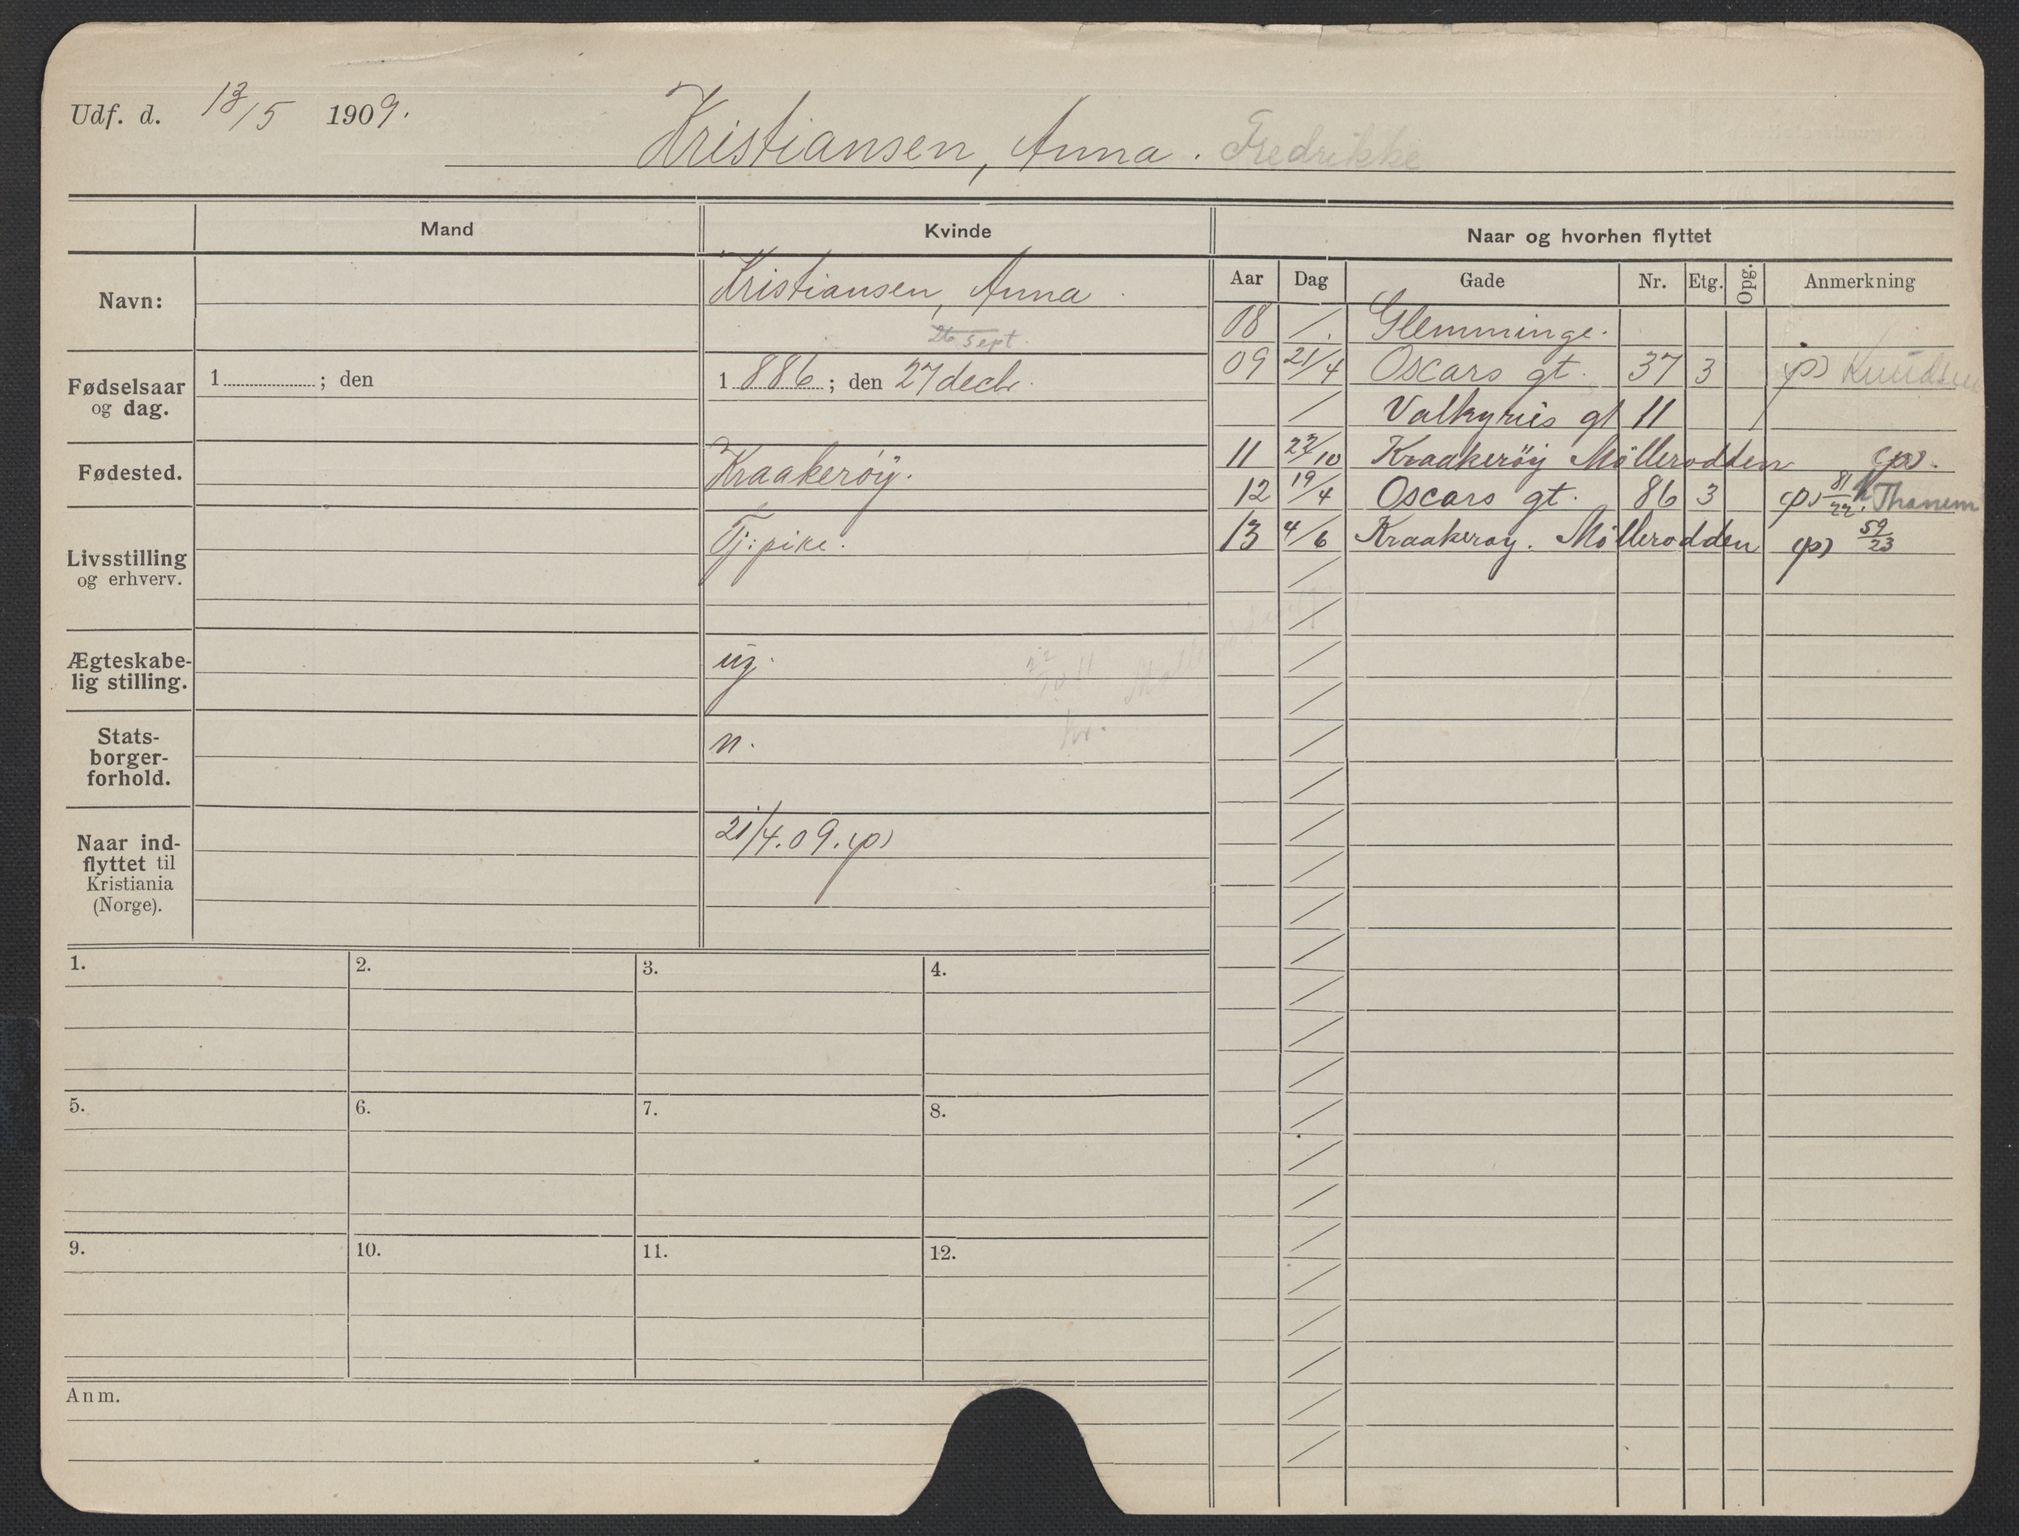 Udf. d. 13/5 1909.
Kristiansen, Anna. Fredrikke
Mand
Kvinde
Navn:
Kristiansen, Anna.
26 sept.
Fødselsaar og dag.
1 ; den
1886; den 27 decbr.
Fødested.
Kraakerøy.
Livsstilling og erhverv.
Tj: pike.
Ægteskabe-
lig stilling.
ug.
Stats-
borger-
forhold.
n.
Naar ind-
flyttet til
Kristiania
(Norge).
21/4.09.(p)
1. 2. 3. 4.
5. 6. 7. 8.
9. 10. 11. 12.
Anm.
Naar og hvorhen flyttet
Aar Dag Gade Nr. Etg. Opg. Anmerkning
08 / Glemminge.
09 21/4 Oscars gt. 37 3 (p) Knudsen
/ Valkyries gt 11
11 22/10 Kraakerøy Møllerodden (p).
12 19/4 Oscars gt. 86 3 (p) 81/22. Thanem
13 4/6 Kraakeroy. Møllerodden (p) 59/23